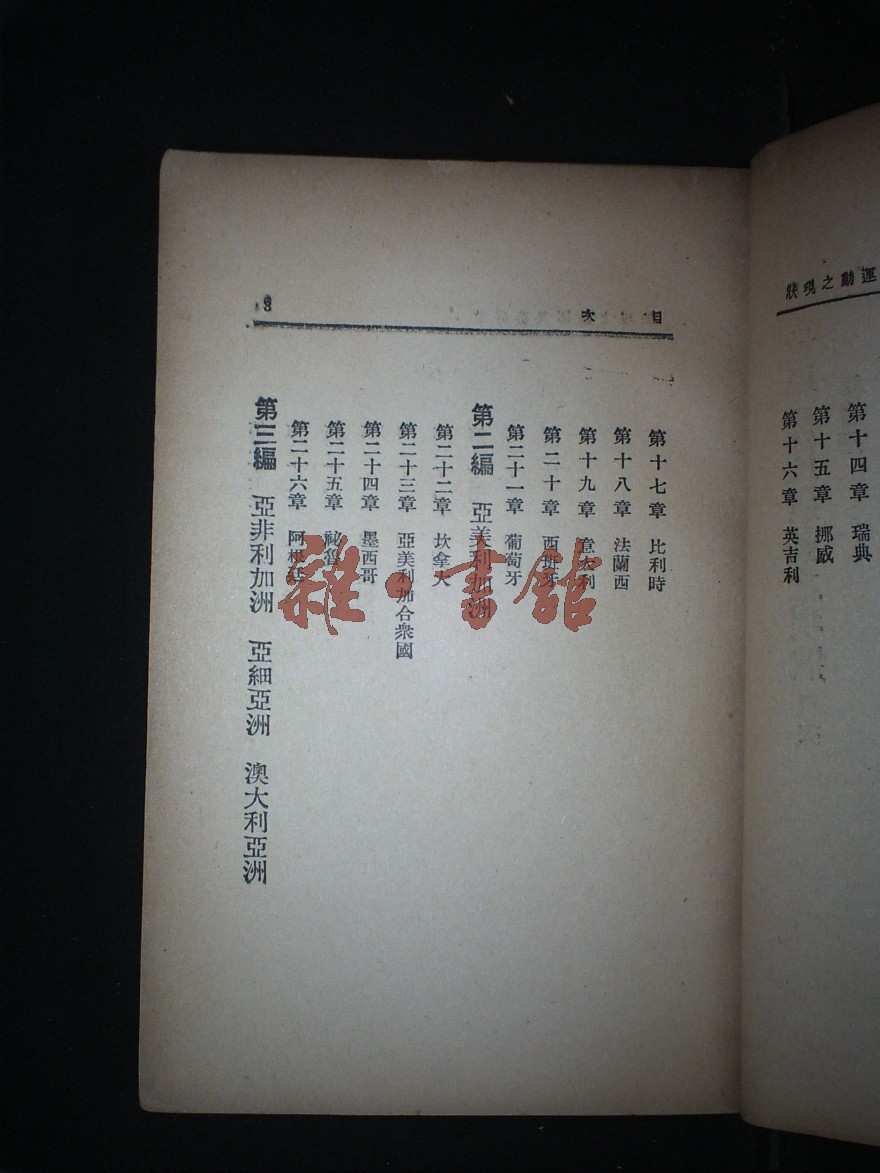 運動之現狀
第十四章 瑞典
第十五章 挪威
第十六章 英吉利
目次
3
第十七章 比利時
第十八章 法蘭西
第十九章 意大利
第二十章 西班牙
第二十一章 葡萄牙
第二編 亞美利加洲
第二十二章 坎拿大
第二十三章 亞美利加合衆國
第二十四章 墨西哥
第二十五章 祕魯
第二十六章 阿根廷
第三編 亞非利加洲 亞細亞洲 澳大利亞洲
雜·書館